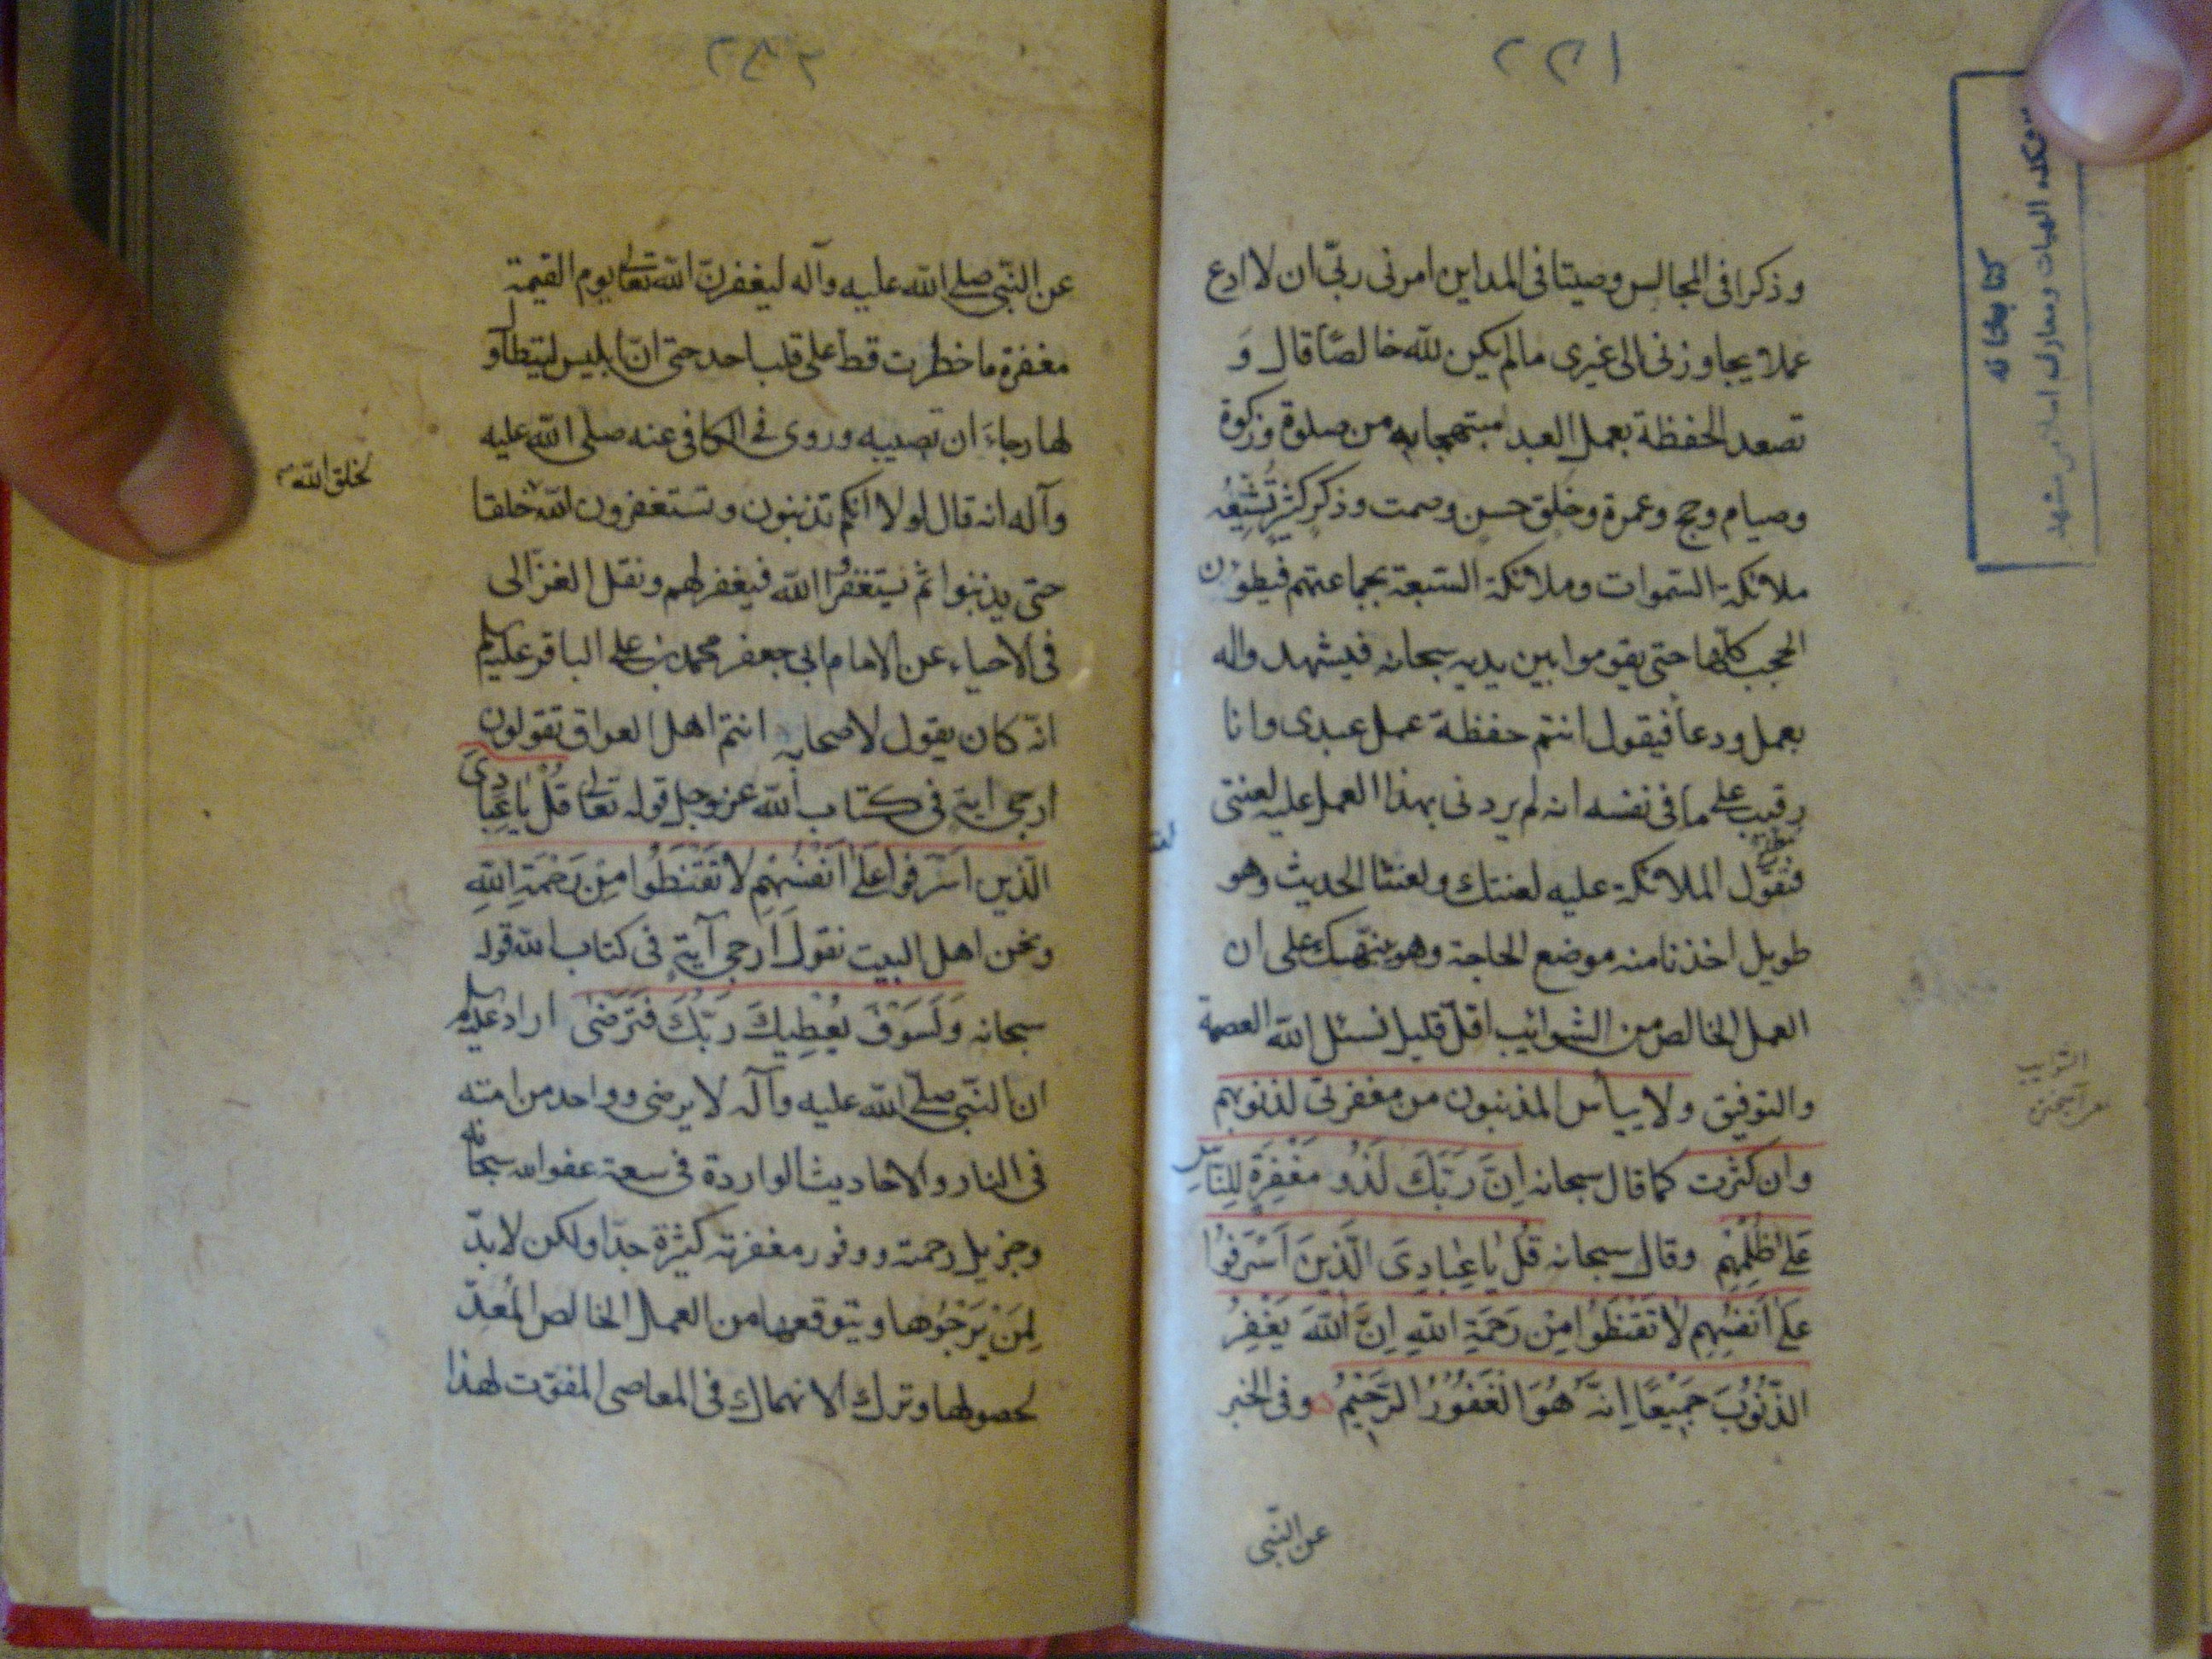 ۲۵۱
وذكرا فى المجالس وصيتا فى المداين امرنى ربّى ان لا ادع
عملا يجاوزنى الى غيرى مالم يكن للّه خالصًا قال وَ
تصعد الحفظة بعمل العبد مبتهجا به من صلوة وزكوة
وصيام وحج وعمرة وخلق حسن وصمت وذكر كثير تُشَيِّعُه
ملائكة السّموات وملائكة السّبعة بجماعتهم فيطؤن
الحجب كلّها حتى يقوموا بين يديه سبحانه فيشهدوا له
بعمل ودعاً فيقول انتم حفظة عمل عبدى وانا
رقيب على ما فى نفسه انه لم يردنى بهذا العمل عليه لعنتى
فتقول الملائكة عليه لعنتك ولعنتنا الحديث وهو
طويل اخذنا منه موضع الحاجة وهو ينبّهك على ان
العمل الخالص من الشوائب اقلّ قليل نسئل اللّه العصمة
والتوفيق ولا ييأس المذنبون من مغفرتى لذنوبهم
وان كثرت كما قال سبحانه اِنَّ رَبَّكَ لَذُو مَغْفِرَةٍ لِلنَّاسِ
عَلىٰ ظُلْمِهِم وقال سبحانه قُلْ يٰا عِبٰادِىَ الَّذينَ اَسْرَفُوا
عَلىٰ اَنْفُسِهِم لٰا تَقْنَطُوا مِنْ رَحْمَةِ اللّهِ اِنَّ اللّٰهَ يَغْفِرُ
الذُّنُوْبَ جَمِيْعًا اِنَّهُ هُوَ الْغَفُوْرُ الرَّحِيْمُ وفى الخبر
عن النّبى
كتابخانه
دانشكده الهيات ومعارف اسلامى مشهد
۲۵۲
عن النّبى صلى اللّه عليه وآله ليغفرنّ اللّه تعالى يوم القيمة
مغفرة ما خطرت قط على قلب احد حتى انّ ابليس ليتطاول
لها رجاءَ ان تصيبه وروى فى الكافى عنه صلى اللّه عليه
وآله انه قال لولا انكم تذنبون وتستغفرون اللّه خلقا
لخلق اللّه
حتى يذنبوا ثم يستغفروا اللّه فيغفر لهم ونقل الغزالى
فى الاحياء عن الامام ابى جعفر محمد بن على الباقر عليه السلم
انه كان يقول لاصحابه انتم اهل العراق تقولون
ارجى اية فى كتاب اللّه عز وجل قوله تعالى قُلْ يٰا عِبٰادِىَ
الّذين اَسْرَفوا عَلىٰ اَنْفُسِهِم لٰا تَقْنَطُوا مِنْ رَحْمَةِ اللّهِ
ونحن اهل البيت نقول ارجى آية فى كتاب اللّه قوله
سبحانه وَلَسَوْفَ يُعْطِيكَ رَبُّكَ فَتَرْضىٰ اراد عليه السلم
ان النّبى صلى اللّه عليه وآله لا يرضى وواحد من امته
فى النار والاحاديث الواردة فى سعة عفو اللّه سبحانه
وجزيل رحمته ووفور مغفرته كثيرة جدّا ولكن لا بدّ
لِمَنْ يَرْجُوها ويتوقعها من العمل الخالص المُعدّ
لحصولها وترك الانهماك فى المعاصى المفوّت لهذا